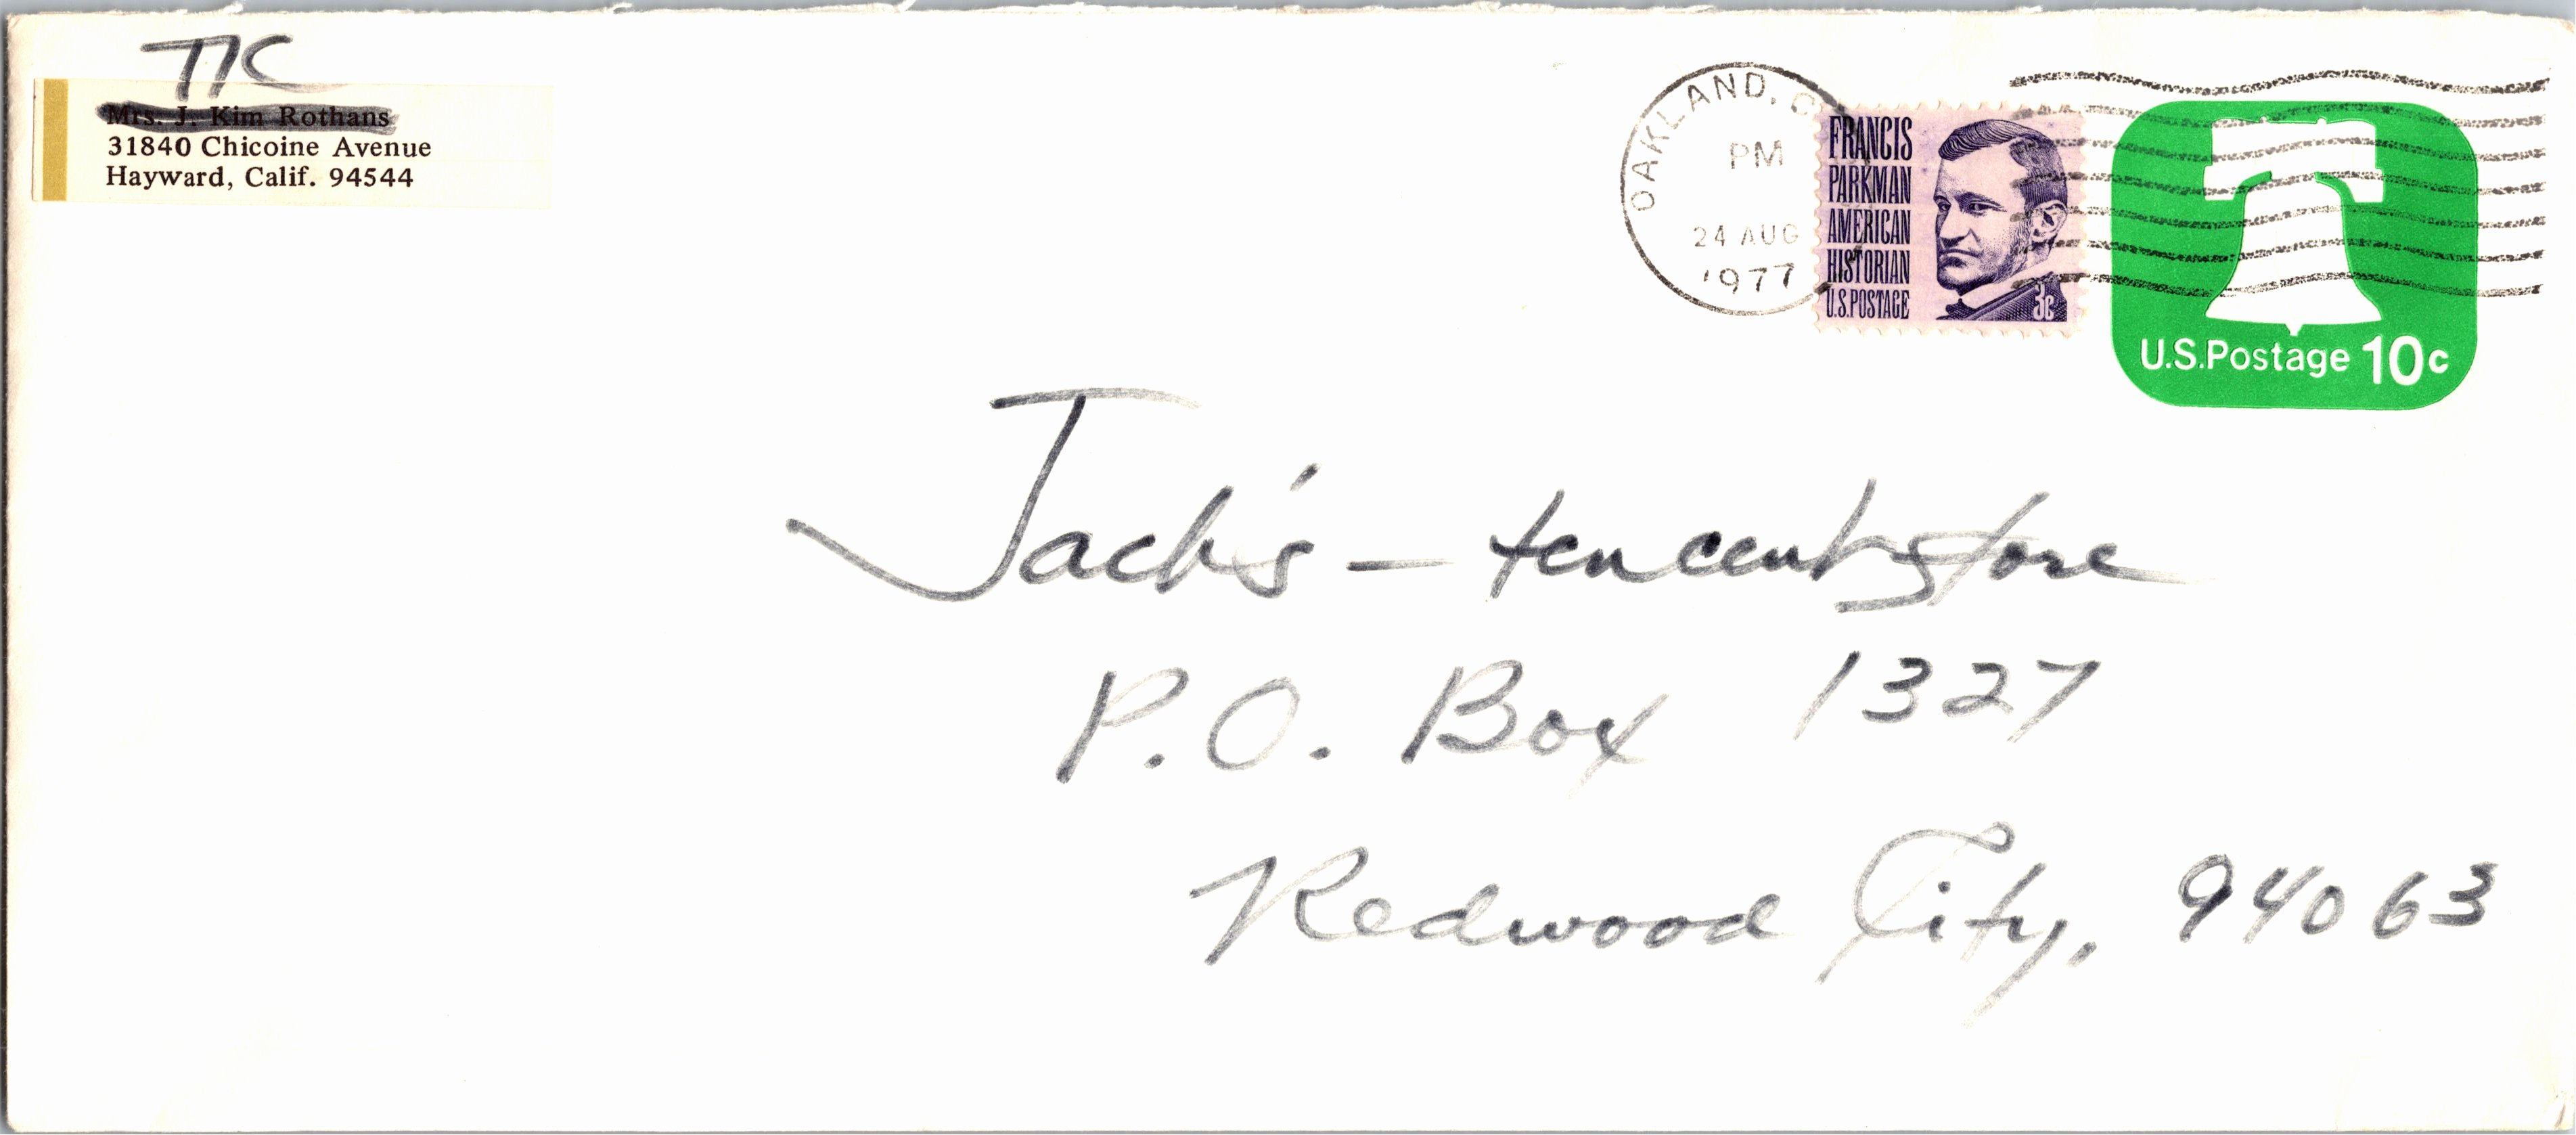 TTC
Mrs. J. Kim Rothans
31840 Chicoine Avenue
Hayward, Calif. 94544
OAKLAND, C
PM
24 AUG
1977
FRANCIS
PARKMAN
AMERICAN
HISTORIAN
U.S. POSTAGE
3c
U.S.Postage 10c
Jack's - tencentstore
P.O. Box 1327
Redwood City, 94063